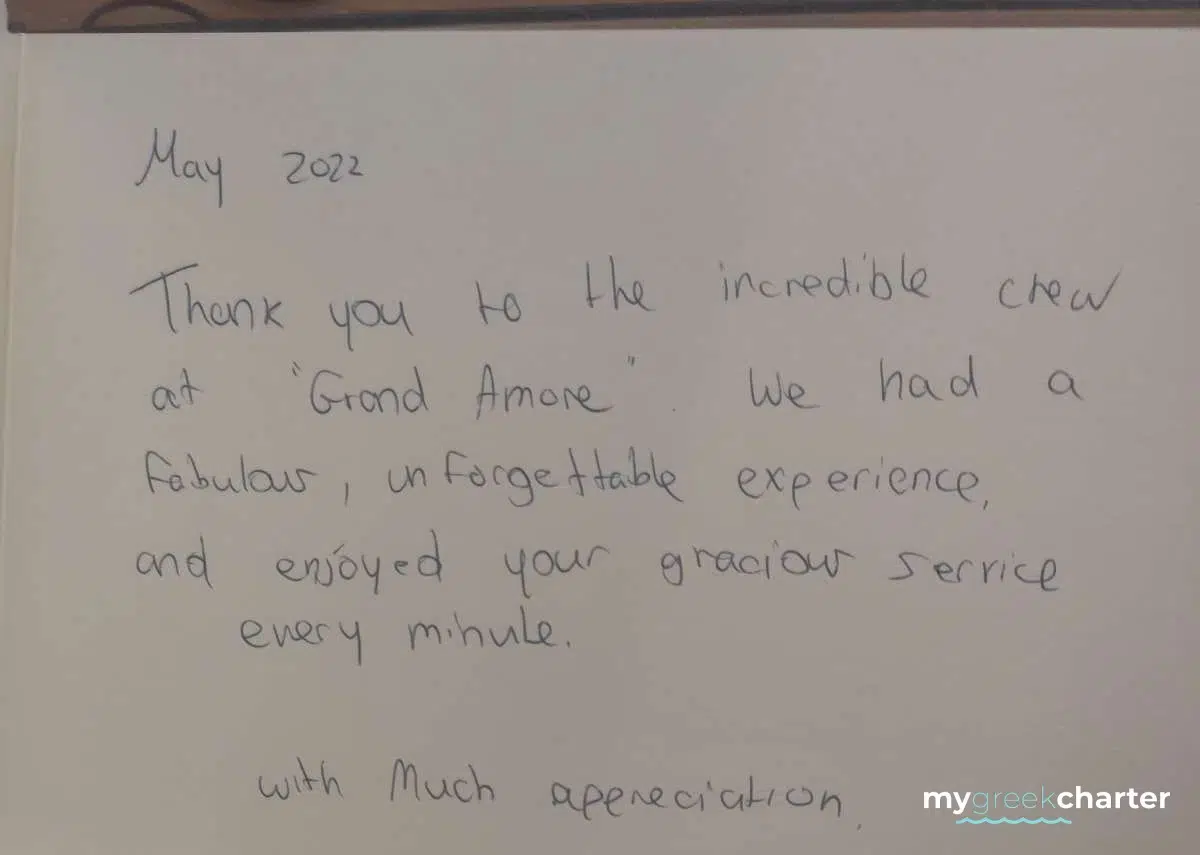 May 2022
Thank you to the incredible crew
at "Grand Amore". We had a
fabulous, unforgettable experience,
and enjoyed your gracious service
every minute.
with Much appreciation,
mygreekcharter